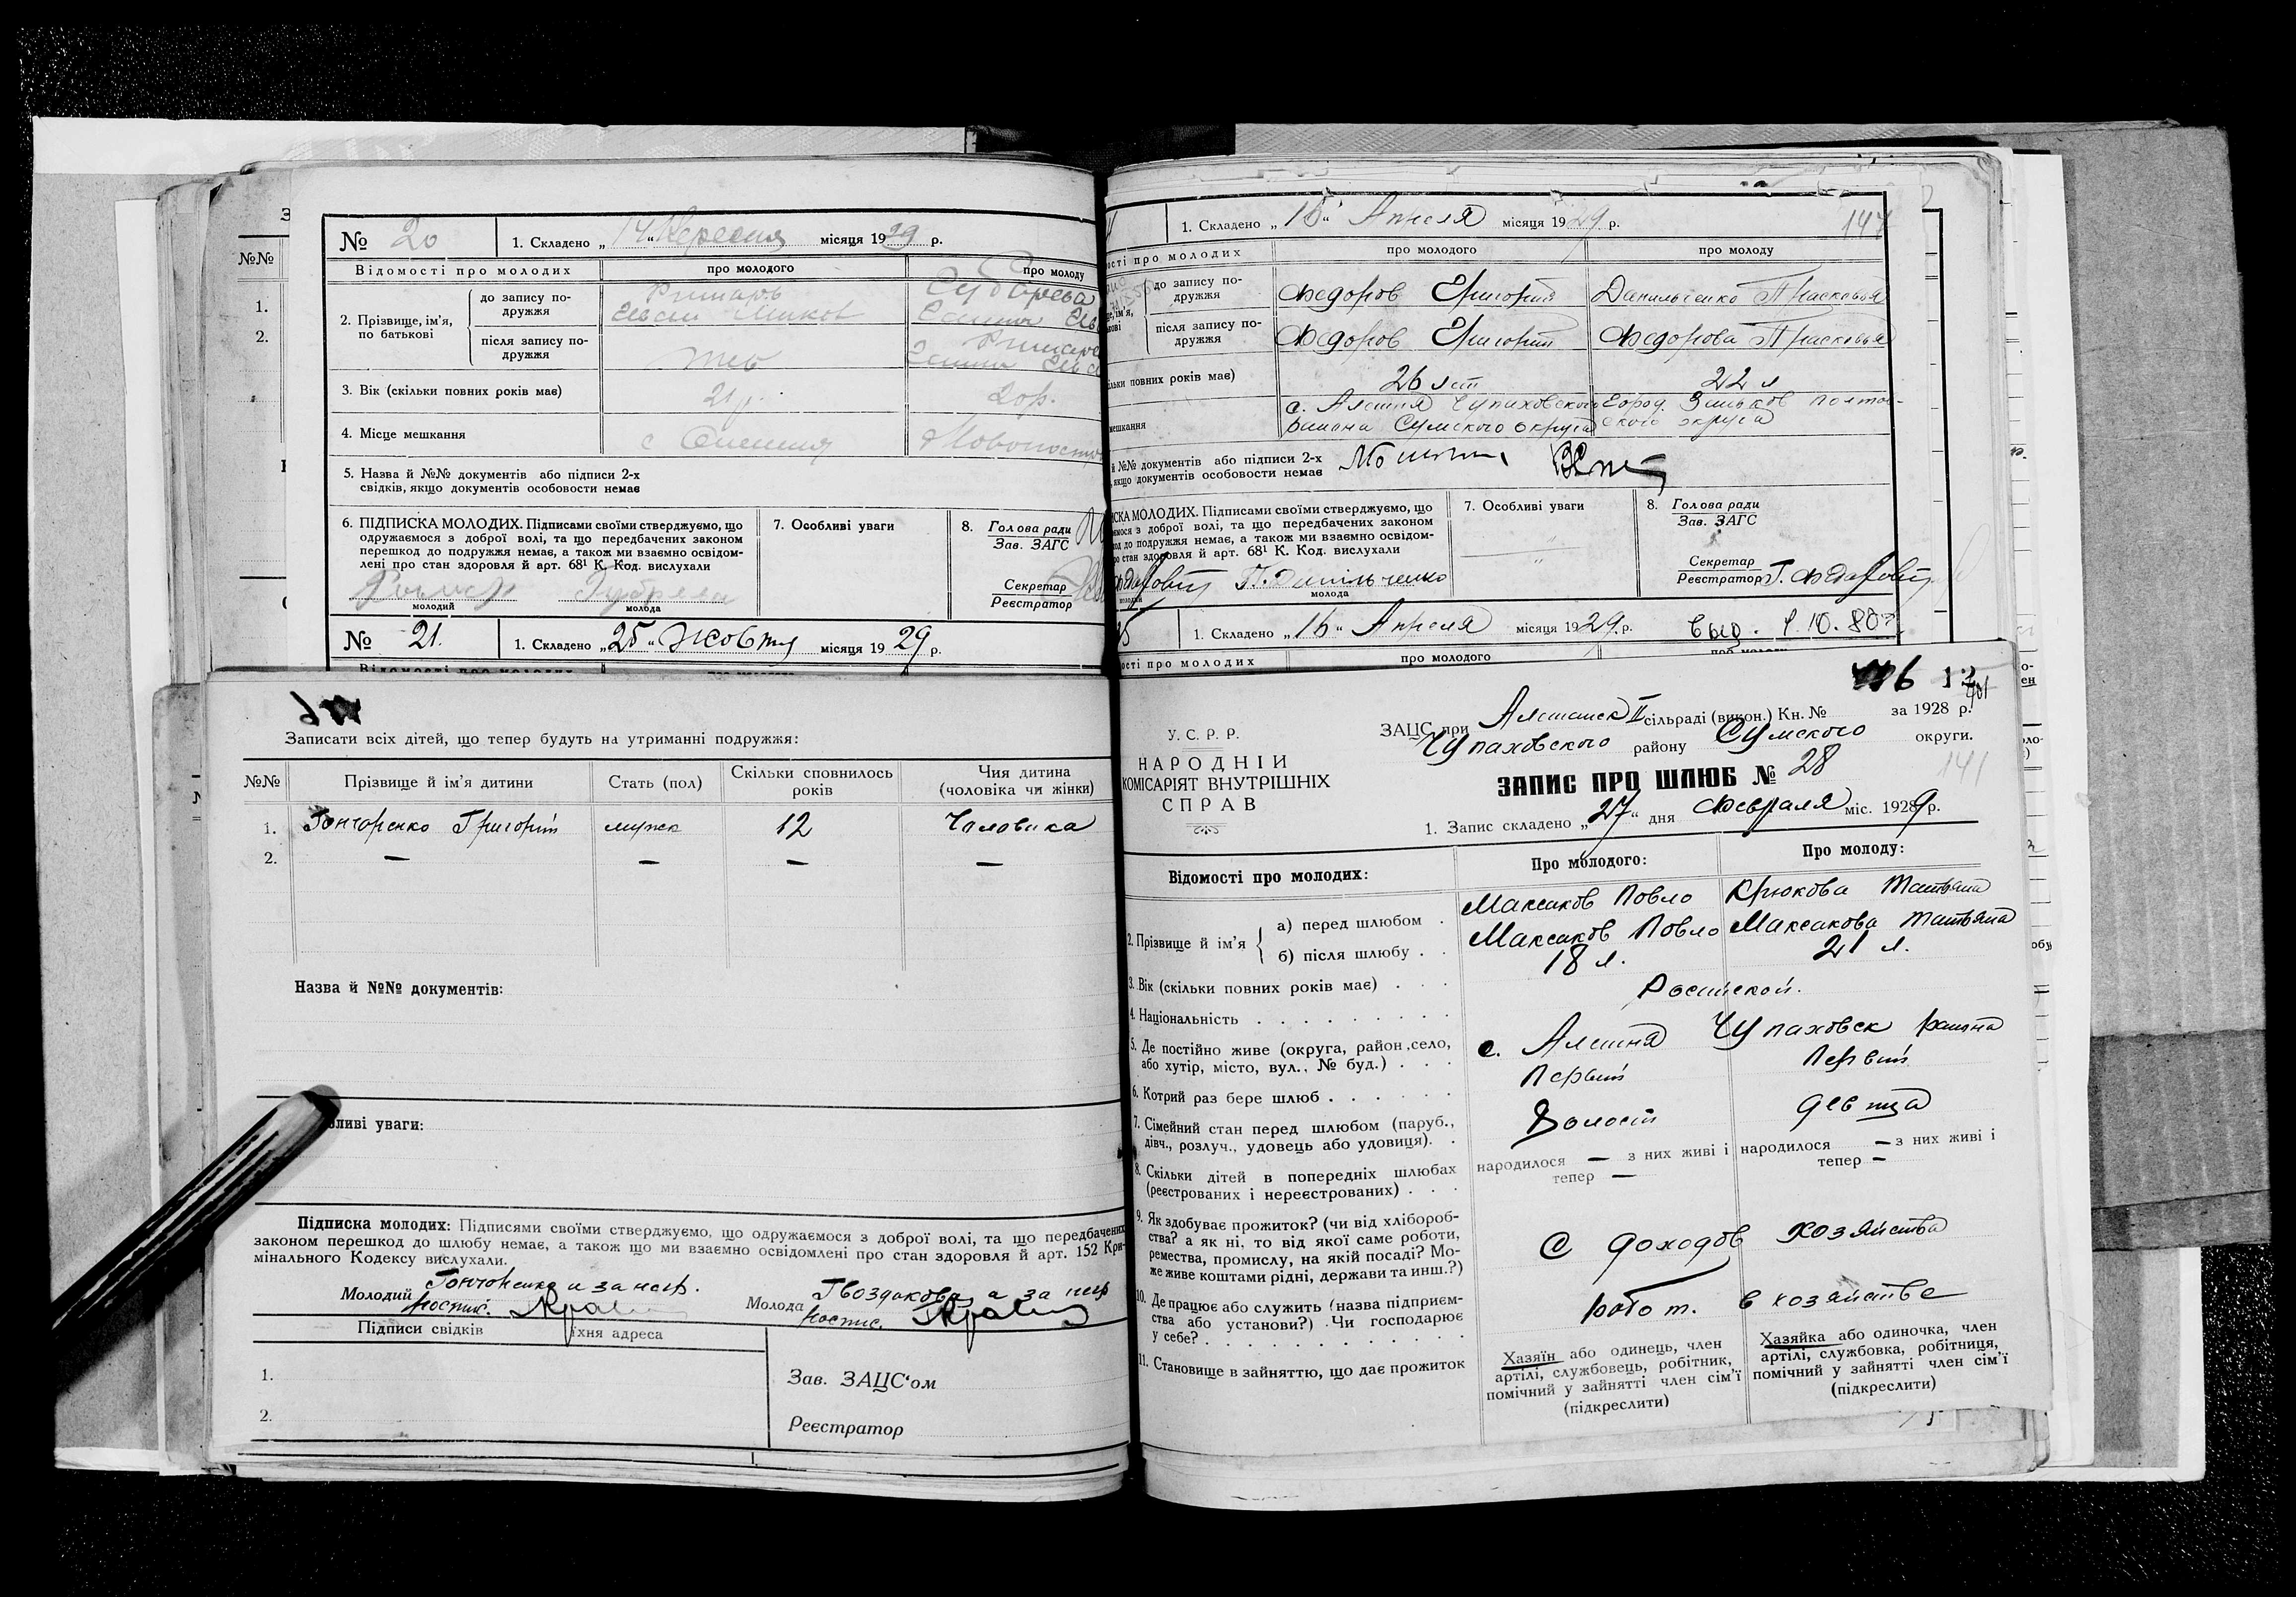 № 20 1. Складено „14“ Вересня місяця 1929 р.
Відомості про молодих про молодого про молоду
2. Прізвище, ім’я, по батькові
до запису подружжя
після запису подружжя
3. Вік (скільки повних років має) 21 р. 20 р.
4. Місце мешкання с
5. Назва й №№ документів або підписи 2-х
свідків, якщо документів особовости немає
6. ПІДПИСКА МОЛОДИХ. Підписами своїми стверджуємо, що
одружаємося з доброї волі, та що передбачених законом
перешкод до подружжя немає, а також ми взаємно освідом-
лені про стан здоровля й арт. 68¹ К. Код. вислухали
молодий молода
7. Особливі уваги
8. Голова ради
Зав. ЗАГС
Секретар
Реєстратор
№ 21. 1. Складено „25“ Жовтня місяця 1929 р.
Записати всіх дітей, що тепер будуть на утриманні подружжя:
№№ Прізвище й ім’я дитини Стать (пол) Скільки сповнилось років Чия дитина (чоловіка чи жінки)
1. Гончаренко Григорій мужск 12 Чоловика
2. — — — —
Назва й №№ документів:
ливі уваги:
Підписка молодих: Підписями своїми стверджуємо, що одружаємося з доброї волі, та що передбачених
законом перешкод до шлюбу немає, а також що ми взаємно освідомлені про стан здоровля й арт. 152 Кри-
мінального Кодексу вислухали.
Молодий Гончаренко а за негр.
роспис.
Молода Гвоздикова а за негр
роспис.
Підписи свідків їхня адреса
1.
2.
Зав. ЗАЦС‘ом
Реєстратор
1. Складено „15“ Апреля місяця 1929 р. 147
ості про молодих про молодого про молоду
до запису подружжя Федоров Григорий Данильченко Прасковья
після запису подружжя Федоров Григорий Федорова Прасковья
ільки повних років має) 26 лет 22 л
мешкання с. Алешня Чупаховского Город. Зиньков Полтав-
района Сумского округа ского округа
й №№ документів або підписи 2-х
, якщо документів особовости немає
ИСКА МОЛОДИХ. Підписами своїми стверджуємо, що
ємося з доброї волі, та що передбачених законом
од до подружжя немає, а також ми взаємно освідом-
ро стан здоровля й арт. 68¹ К. Код. вислухали
П. Данильченко
молодий молода
7. Особливі уваги
8. Голова ради
Зав. ЗАГС
Секретар
Реєстратор
25 1. Складено „16“ Апреля місяця 1929 р.
ості про молодих про молодого про молоду
У. С. Р. Р.
НАРОДНІЙ
КОМІСАРІЯТ ВНУТРІШНІХ
СПРАВ
ЗАЦС при Алешанск II сільраді (викон.) Кн. № за 1928 р.
Чупаховского району Сумского округи.
ЗАПИС ПРО ШЛЮБ № 28
141
1. Запис складено „27“ дня Февраля міс. 1929 р.
Відомості про молодих: Про молодого: Про молоду:
2. Прізвище й ім’я
а) перед шлюбом . Максаков Повло Крюкова Татьяна
б) після шлюбу . . Максаков Повло Максакова Татьяна
3. Вік (скільки повних років має) . . . 18 л. 21 л.
4. Національність . . . . . . . . . Росийской.
5. Де постійно живе (округа, район, село,
або хутір, місто, вул., № буд.) . . . с. Алешня Чупаховск района
6. Котрий раз бере шлюб . . . . . . Первий Первий
7. Сімейний стан перед шлюбом (паруб.,
дівч., розлуч., удовець або удовиця). . Холост девица
8. Скільки дітей в попередніх шлюбах
(реєстрованих і нереєстрованих) . . .
народилося — з них живі і тепер — народилося — з них живі і тепер —
9. Як здобуває прожиток? (чи від хлібороб-
ства? а як ні, то від якої саме роботи,
ремества, промислу, на якій посаді? Мо-
же живе коштами рідні, держави та инш.?)
С доходов хозяйства
10. Де працює або служить (назва підприєм-
ства або установи?) Чи господарює
у себе? . . . . . . . . . . .
робот. в хозяйстве
11. Становище в зайняттю, що дає прожиток
Хазяїн або одинець, член
артілі, службовець, робітник,
помічний у зайнятті член сім’ї
(підкреслити)
Хазяйка або одиночка, член
артілі, службовка, робітниця,
помічний у зайнятті член сім’ї
(підкреслити)